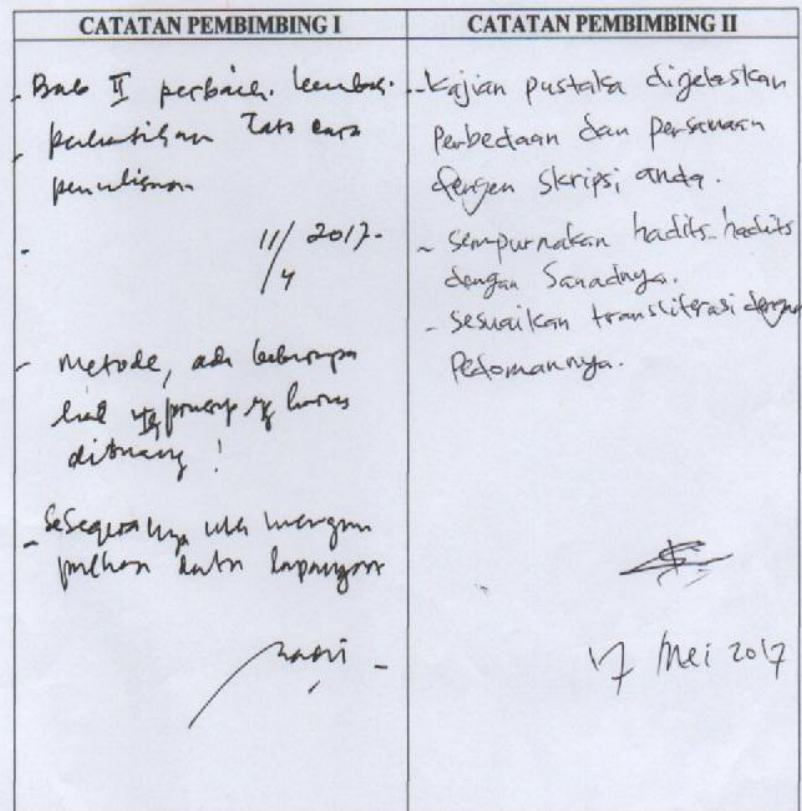 CATATAN PEMBIMBING I
- Bab II perbaiki kembali.
- perhatikan Tata cara
penulisan
11/4 2017.
- Metode, ada beberapa
hal yg prinsip yg harus
- Sesegera nya utk mengum
pulkan data lapangan
CATATAN PEMBIMBING II
- Kajian pustaka dijelaskan
Perbedaan dan persamaan
dengan skripsi anda.
- sempurnakan hadits-hadits
dengan Sanadnya.
- Sesuaikan transliterasi dengan
Pedomannya.
17 Mei 2017